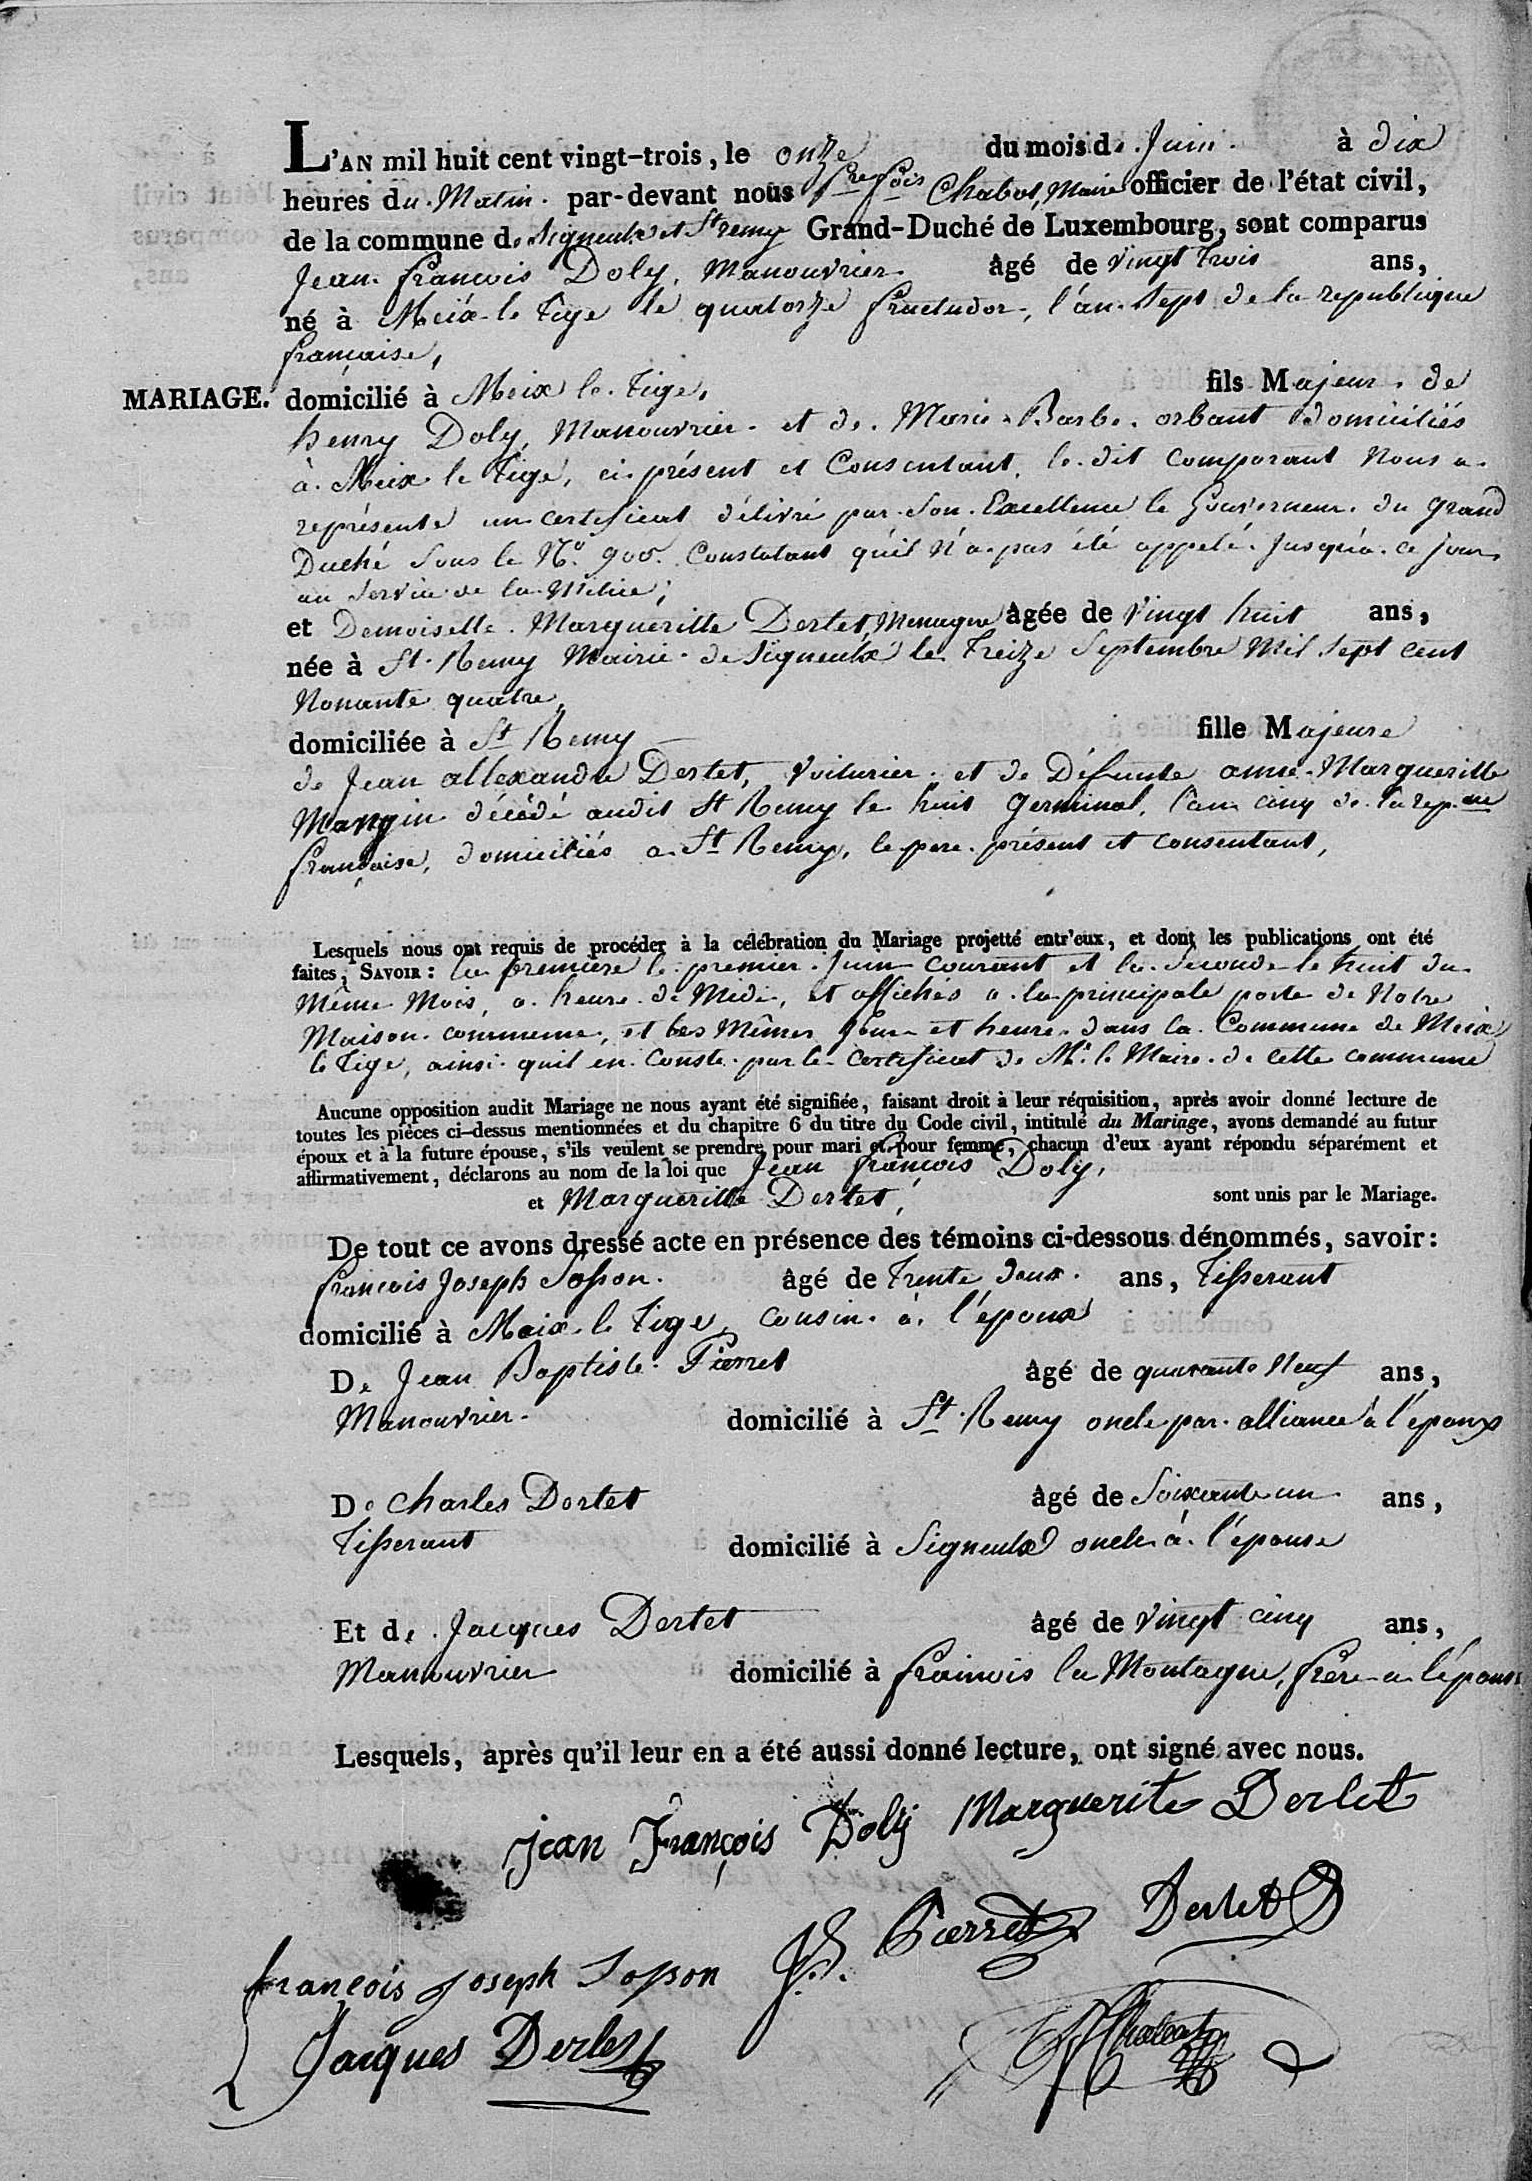 L'AN mil huit cent vingt-trois, le onze du mois de Juin à dix
heures du Matin par-devant nous Pre fois Chabot, Maire officier de l'état civil,
de la commune de Signeulx et St remy Grand-Duché de Luxembourg, sont comparus
Jean francois Doly, Manouvrier âgé de vingt trois ans,
né à Meix le tige le quatorze fructudor, l'an sept de la republique
française,
MARIAGE. domicilié à Meix le tige, fils Majeur de
henry Doly, Manouvrier et de Marie Barbe orbant domiciliés
à Meix le tige, ci présent et Consentant, le dit comparant Nous a
représenté un certificat délivré par Son Excellence le Gouverneur du grand
Duché Sous le No. 900 Constatant qu'il n'a pas été appelé Jusqu'a ce jour
au Service de la Milice;
et Demoiselle Marguerille Dertet, Menagere âgée de vingt huit ans,
née à St. Remy Mairie de Signeulx le treize Septembre Mil Sept cent
Nonante quatre,
domiciliée à St Remy fille Majeure
de Jean allexandre Dertet, voiturier et de Défunte anne Marguerille
Mangin décédé audit St Remy le huit Germinal, l'an cinq de la repque
française, domiciliés a St Remy, le pere présent et consentant,
Lesquels nous ont requis de procéder à la célébration du Mariage projetté entr'eux, et dont les publications ont été
faites, SAVOIR : la première le premier Juin courant et la Seconde le huit du
Même Mois, a heure de Midi, et affichés a la principale porte de Notre
Maison commune, et les Mêmes Jour et heure dans la Commune de Meix
le tige, ainsi quil en Conste par le Certificat de Mr. le Maire de cette commune
Aucune opposition audit Mariage ne nous ayant été signifiée, faisant droit à leur réquisition, après avoir donné lecture de
toutes les pièces ci-dessus mentionnées et du chapitre 6 du titre du Code civil, intitulé du Mariage, avons demandé au futur
époux et à la future épouse, s'ils veulent se prendre pour mari et pour femme, chacun d'eux ayant répondu séparément et
affirmativement, déclarons au nom de la loi que Jean françois Doly,
et Marguerille Dertet, sont unis par le Mariage.
De tout ce avons dressé acte en présence des témoins ci-dessous dénommés, savoir :
françois Joseph Sosson âgé de trente deux ans, Tisserant
domicilié à Meix le tige, cousin à l'époux
De Jean Baptiste Pierret âgé de quarante Neuf ans,
Manouvrier domicilié à St. Remy oncle par alliance à l'époux
De charles Dertet âgé de Soixante un ans,
Tisserant domicilié à Signeulx oncle à l'épouse
Et de Jacques Dertet âgé de vingt cinq ans,
Manouvrier domicilié à frainois la Montagne, frère a l'épouse
Lesquels, après qu'il leur en a été aussi donné lecture, ont signé avec nous.
Jean François Dolÿ Marguerite Derlet
J.B. Pierret Derlet
françois joseph Sosson
Jacques Derlet Chabot